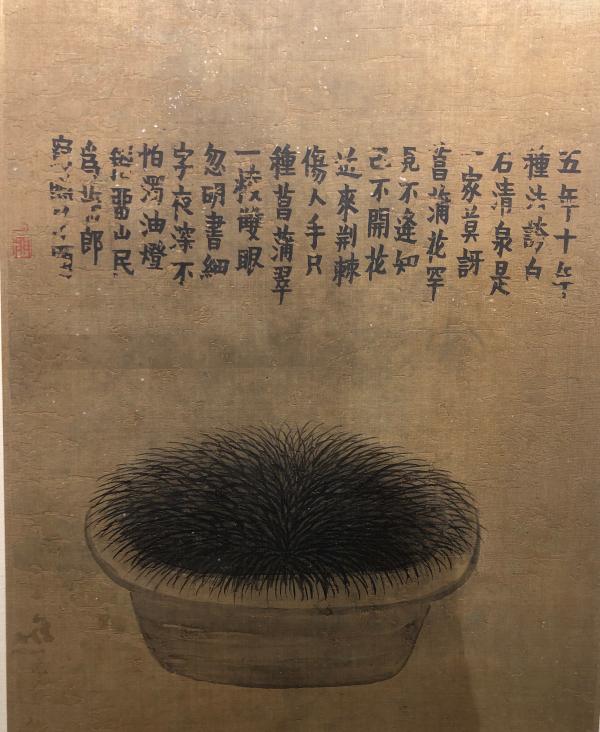 五年十年
種法誇白
石清泉是
一家莫訝
菖蒲花罕
見不逢知
己不開花
近來荊棘
傷人手只
種菖蒲翠
一稜雙眼
忽明書細
字夜深不
怕濁油燈
留山民
為郎